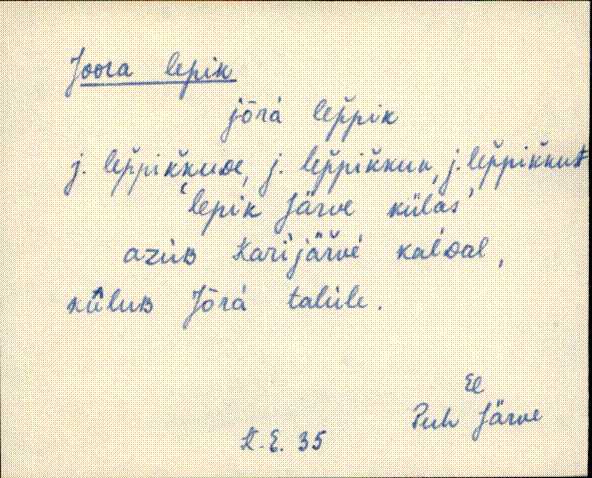 Joora lepik
jōrá lep̆pik
j. lep̆pik̆kuᴅe, j. lep̆pik̆kuʜ, j. lep̆pik̆kust
'lepik Järve külas'
azúʙ Karijärvé kalᴅal,
kūluʙ Jōrá talúle.
Ee
Puh Järve
K.E. 35